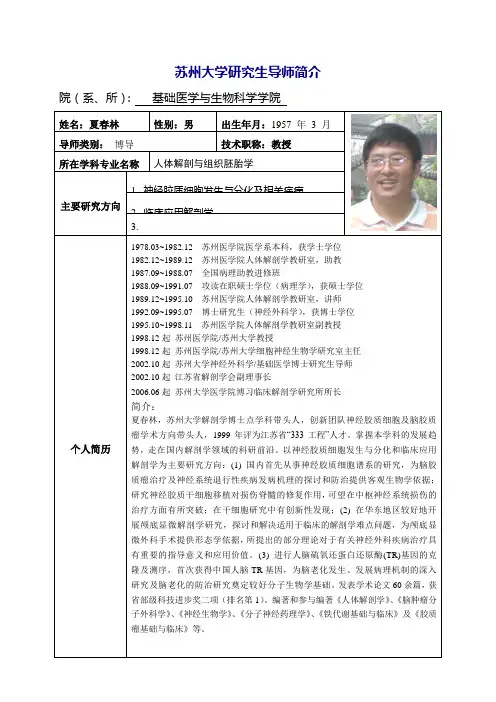 苏州大学研究生导师简介
院（系、所）： 基础医学与生物科学学院
姓名：夏春林 性别：男 出生年月：1957 年 3 月
导师类别： 博导 技术职称：教授
所在学科专业名称 人体解剖与组织胚胎学
主要研究方向
1. 神经胶质细胞发生与分化及相关疾病
2. 临床应用解剖学
3.
个人简历
1978.03~1982.12 苏州医学院医学系本科，获学士学位
1982.12~1989.12 苏州医学院人体解剖学教研室，助教
1987.09~1988.07 全国病理助教进修班
1988.09~1991.07 攻读在职硕士学位（病理学），获硕士学位
1989.12~1995.10 苏州医学院人体解剖学教研室，讲师
1992.09~1995.07 博士研究生（神经外科学），获博士学位
1995.10~1998.11 苏州医学院人体解剖学教研室副教授
1998.12 起 苏州医学院/苏州大学教授
1998.12 起 苏州医学院/苏州大学细胞神经生物学研究室主任
2002.10 起 苏州大学神经外科学/基础医学博士研究生导师
2002.10 起 江苏省解剖学会副理事长
2006.06 起 苏州大学医学院博习临床解剖学研究所所长
简介：
夏春林，苏州大学解剖学博士点学科带头人，创新团队神经胶质细胞及脑胶质
瘤学术方向带头人，1999 年评为江苏省“333 工程”人才。掌握本学科的发展趋
势，走在国内解剖学领域的科研前沿。以神经胶质细胞发生与分化和临床应用
解剖学为主要研究方向：(1) 国内首先从事神经胶质细胞谱系的研究，为脑胶
质瘤治疗及神经系统退行性疾病发病机理的探讨和防治提供客观生物学依据；
研究神经胶质干细胞移植对损伤脊髓的修复作用，可望在中枢神经系统损伤的
治疗方面有所突破；在干细胞研究中有创新性发现；(2) 在华东地区较好地开
展颅底显微解剖学研究，探讨和解决适用于临床的解剖学难点问题，为颅底显
微外科手术提供形态学依据，所提出的部分理论对于有关神经外科疾病治疗具
有重要的指导意义和应用价值。(3) 进行人脑硫氧还蛋白还原酶(TR)基因的克
隆及测序，首次获得中国人脑 TR 基因，为脑老化发生、发展病理机制的深入
研究及脑老化的防治研究奠定较好分子生物学基础。发表学术论文 60 余篇，获
省部级科技进步奖二项（排名第 1）。编著和参与编著《人体解剖学》、《脑肿瘤分
子外科学》、《神经生物学》、《分子神经药理学》、《铁代谢基础与临床》及《胶质
瘤基础与临床》等。